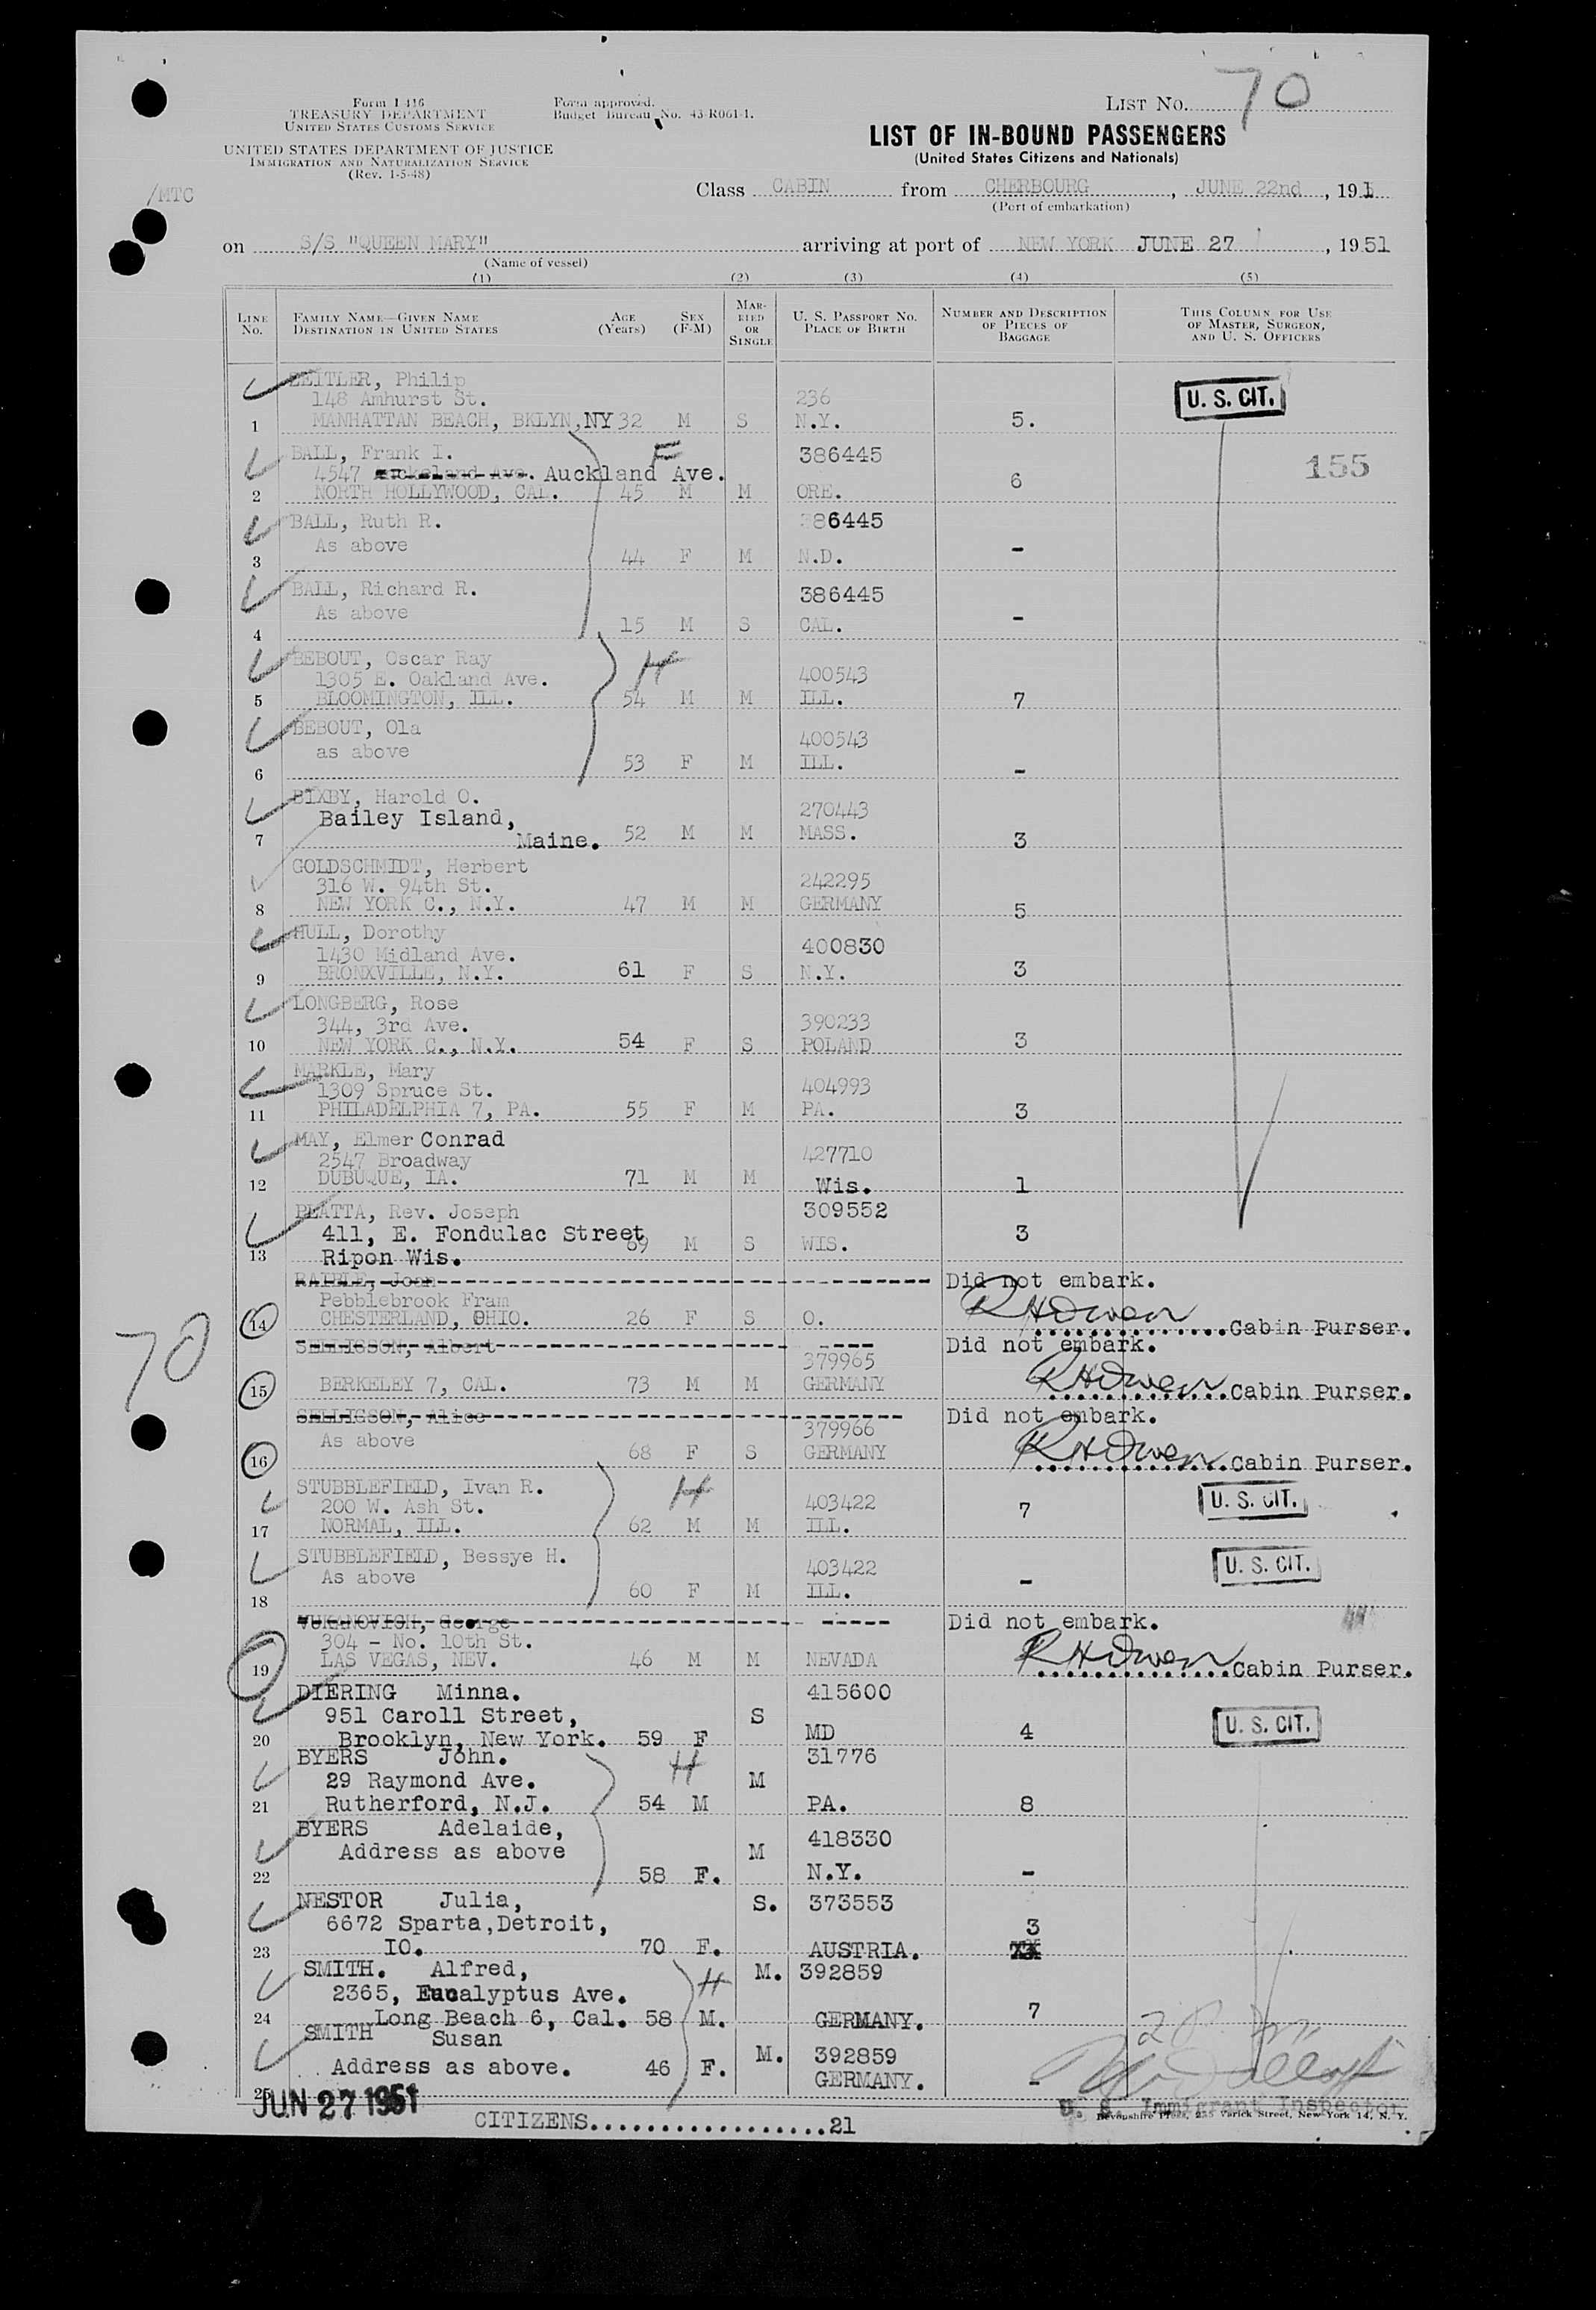 LIST No. 70
Form I-416
TREASURY DEPARTMENT
UNITED STATES CUSTOMS SERVICE
Form approved.
Budget Bureau No. 43-R061-1.
UNITED STATES DEPARTMENT OF JUSTICE
IMMIGRATION AND NATURALIZATION SERVICE
(Rev. 1-5-48)
LIST OF IN-BOUND PASSENGERS
(United States Citizens and Nationals)
/MTC
Class CABIN from CHERBOURG, JUNE 22nd, 191
(Port of embarkation)
on S/S "QUEEN MARY" arriving at port of NEW YORK JUNE 27, 1951
(Name of vessel)
(1) (2) (3) (4) (5)
LINE No. FAMILY NAME—GIVEN NAME DESTINATION IN UNITED STATES AGE (Years) SEX (F-M) MARRIED OR SINGLE U. S. PASSPORT NO. PLACE OF BIRTH NUMBER AND DESCRIPTION OF PIECES OF BAGGAGE THIS COLUMN FOR USE OF MASTER, SURGEON, AND U. S. OFFICERS
BEITLER, Philip
148 Amhurst St. 236 U. S. CIT.
1 MANHATTAN BEACH, BKLYN,NY 32 M S N.Y. 5.
BALL, Frank I. F 386445
4547 Auckland Ave. 155
2 NORTH HOLLYWOOD, CAL. 45 M M ORE. 6
BALL, Ruth R. 386445
As above
3 44 F M N.D. -
BALL, Richard R. 386445
As above
4 15 M S CAL. -
BEBOUT, Oscar Ray H
1305 E. Oakland Ave. 400543
5 BLOOMINGTON, ILL. 54 M M ILL. 7
BEBOUT, Ola 400543
as above
6 53 F M ILL. -
BIXBY, Harold O. 270443
Bailey Island,
7 Maine. 52 M M MASS. 3
GOLDSCHMIDT, Herbert
316 W. 94th St. 242295
8 NEW YORK C., N.Y. 47 M M GERMANY 5
HULL, Dorothy 400830
1430 Midland Ave.
9 BRONXVILLE, N.Y. 61 F S N.Y. 3
LONGBERG, Rose
344, 3rd Ave. 390233
10 NEW YORK C., N.Y. 54 F S POLAND 3
MARKLE, Mary
1309 Spruce St. 404993
11 PHILADELPHIA 7, PA. 55 F M PA. 3
MAY, Elmer Conrad
2547 Broadway 427710
12 DUBUQUE, IA. 71 M M Wis. 1
PLATTA, Rev. Joseph 309552
411, E. Fondulac Street
13 Ripon Wis. 69 M S WIS. 3
RAIBLE, Joan Did not embark.
Pebblebrook Fram
14 CHESTERLAND, OHIO. 26 F S O. RHOwen Cabin Purser.
SELLIGSON, Albert Did not embark.
379965
15 BERKELEY 7, CAL. 73 M M GERMANY RHOwen Cabin Purser.
70
SELLIGSON, Alice Did not embark.
As above 379966
16 68 F S GERMANY RHOwen Cabin Purser.
STUBBLEFIELD, Ivan R. H
200 W. Ash St. 403422 U. S. CIT.
17 NORMAL, ILL. 62 M M ILL. 7
STUBBLEFIELD, Bessye H. 403422 U. S. CIT.
As above
18 60 F M ILL. -
VUKANOVICH, George Did not embark.
304 - No. 10th St.
19 LAS VEGAS, NEV. 46 M M NEVADA RHOwen Cabin Purser.
DIERING Minna. 415600
951 Caroll Street, S
20 Brooklyn, New York. 59 F MD 4 U. S. CIT.
BYERS John. H 31776
29 Raymond Ave. M
21 Rutherford, N.J. 54 M PA. 8
BYERS Adelaide, 418330
Address as above M
22 58 F. N.Y. -
NESTOR Julia, S. 373553
6672 Sparta,Detroit, 3
23 IO. 70 F. AUSTRIA.
SMITH. Alfred, H M. 392859
2365, Eucalyptus Ave.
24 Long Beach 6, Cal. 58 M. GERMANY. 7
SMITH Susan M. 392859
Address as above. 46 F. GERMANY. -
25
JUN 27 1951
CITIZENS..................21
U. S. Immigrant Inspector
Devonshire Press, 255 Varick Street, New York 14, N. Y.